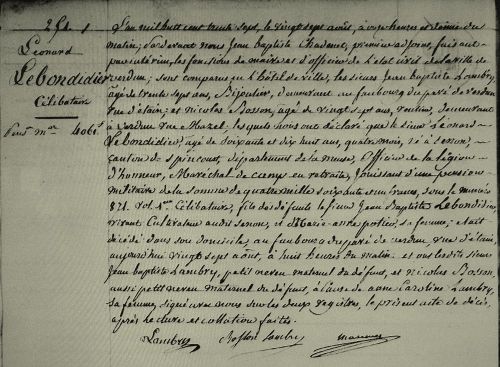 254
Léonard
Lebondidier
Célibataire
Pens. m.re 4061f
L'an mil huit cent trente sept, le vingt sept août, à onze heures et demie du
matin, Par devant nous Jean Baptiste Chadenet, premier adjoint, faisant
par intérim, les fonctions de maire et d'officier de l'état civil de la ville de
verdun; sont comparus en l'hôtel de ville, les sieurs Jean baptiste Lambry,
agé de trente sept ans, Bijoutier, demeurant au faubourg du pavé de verdun
rue d'étain; et nicolas Bosson, agé de vingt sept ans, demeurant
à verdun rue Mazel; lesquels nous ont déclaré que le sieur Léonard
Lebondidier, agé de soixante et dix huit ans, quatre mois, né à senon,
canton de spincourt, département de la meuse, Officier de la légion
d'honneur, Maréchal de camp en retraite, jouissant d'une pension
militaire de la somme de quatre mille soixante et un francs, sous le numéro
821. vol. 1er Célibataire, fils des défunts le sieur Jean Baptiste Lebondidier
vivant Cultivateur audit senon, et de Marie-anne potier, sa femme; etait
décédé dans son domicile, au faubourg du pavé de verdun, rue d'étain,
aujourd'hui vingt sept août, à huit heures du matin. et ont lesdits sieurs
Jean baptiste Lambry, petit neveu maternel du défunt, et nicolas Bosson
aussi petit neveu maternel du défunt, à cause de anne Caroline Lambry,
sa femme, signé avec nous sur les deux registres, le présent acte de décès,
après lecture et collation faites.
Lambry Bosson Lambry